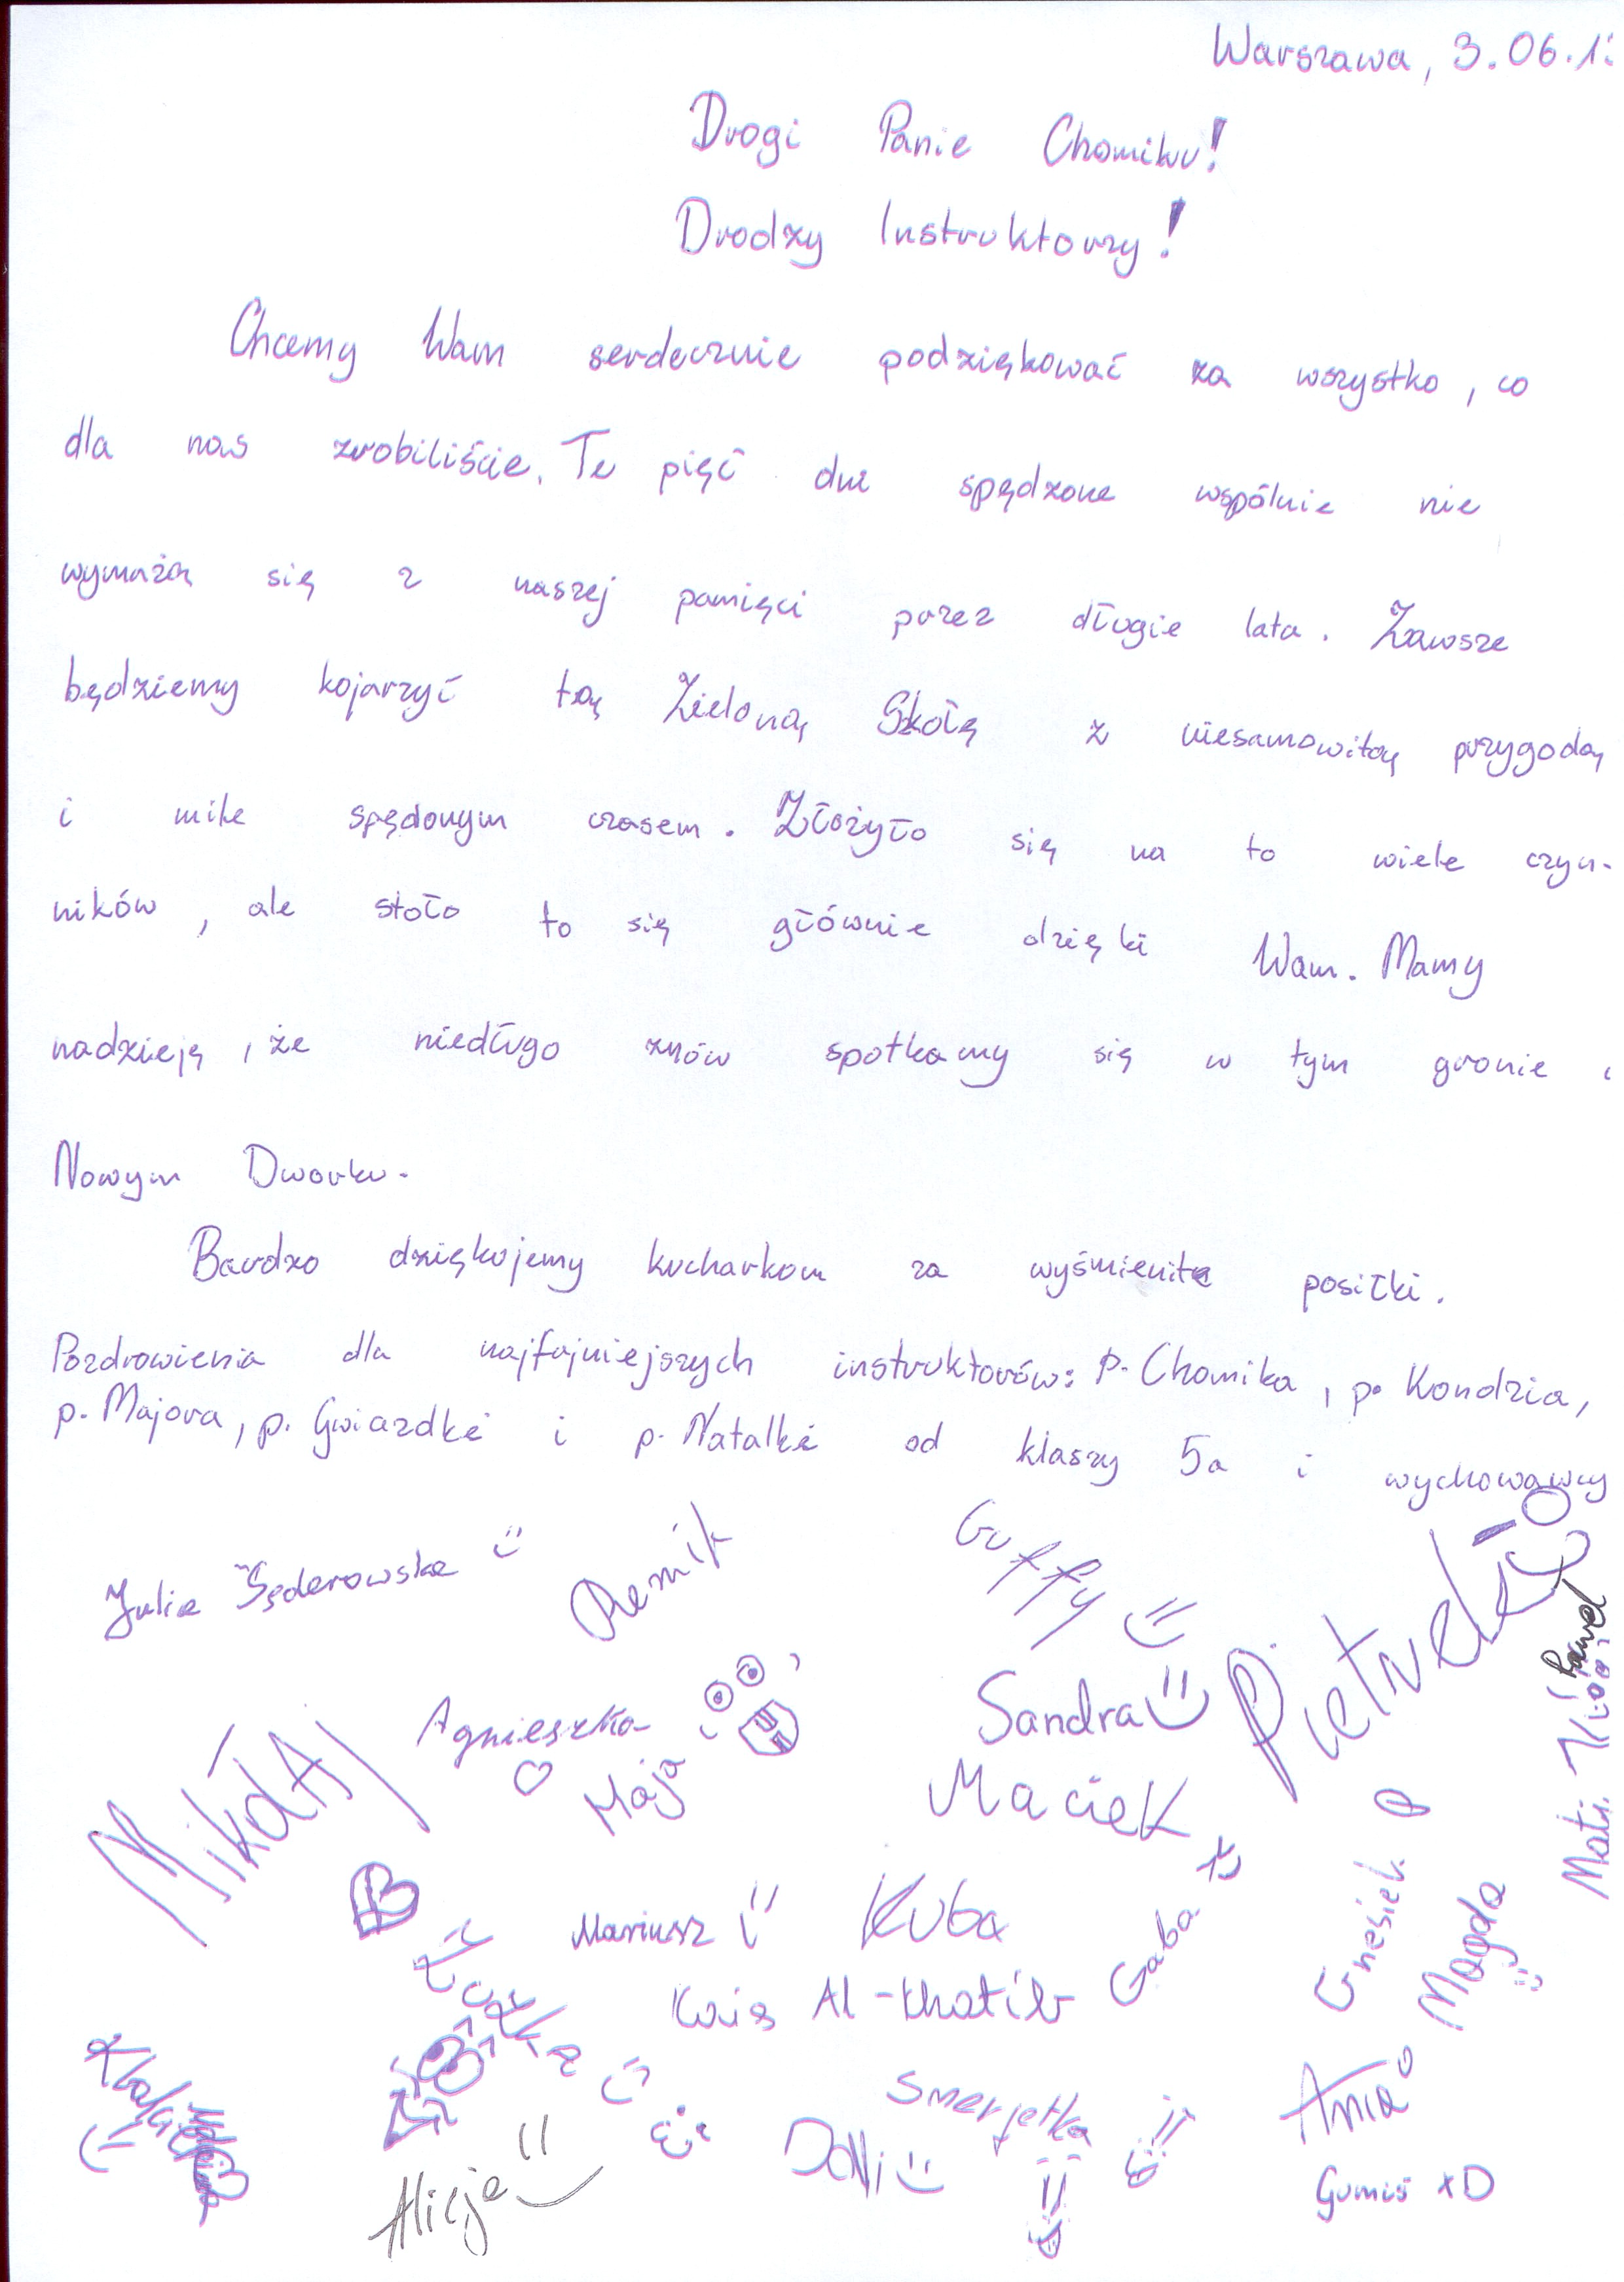 Warszawa, 3.06.1
Drogi Panie Chomiku!
Drodzy Instruktorzy!
Chcemy Wam serdecznie podziękować za wszystko, co
dla nas zrobiliście. Te pięć dni spędzone wspólnie nie
wymażą się z naszej pamięci przez długie lata. Zawsze
będziemy kojarzyć tą Zieloną Szkołę z niesamowitą przygodą
i mile spędonym czasem. Złożyło się na to wiele czyn-
ników, ale stało to się głównie dzięki Wam. Mamy
nadzieję, że niedługo znów spotkamy się w tym gronie
Nowym Dworku.
Bardzo dziękujemy kucharkom za wyśmienite posiłki.
Pozdrowienia dla najfajniejszych instruktorów: p. Chomika, p. Kondzia,
p. Majora, p. Gwiazdki i p. Natalki od klasy 5a i wychowawcy
Julia Remik Guffy
Pietrucha
Paweł
Agnieszka Maja Sandra
Mikołaj Maciek Mati.
Mariusz Kuba Gaba Gnesiek Magda
Zuzka Kais Al-khatib
Smerfetka Ania
Alicja Davi Gumiś xD